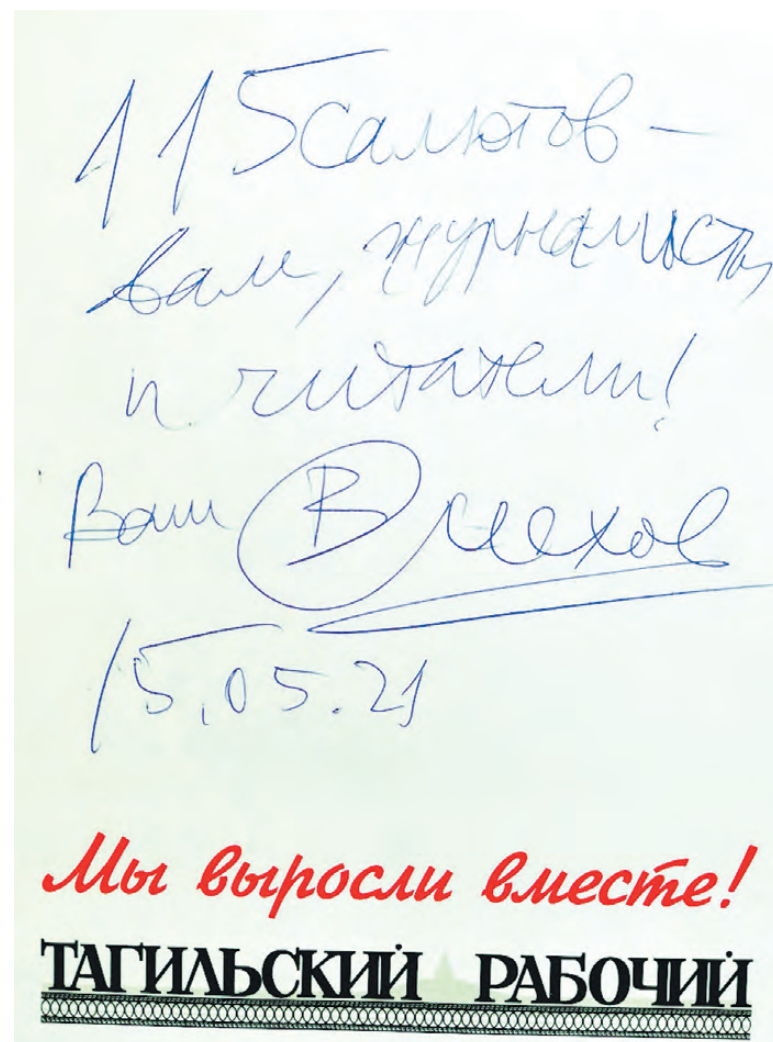 115 салютов –
вам, журналисты
и читатели!
Ваш В Смехов
15.05.21
Мы выросли вместе!
ТАГИЛЬСКИЙ РАБОЧИЙ